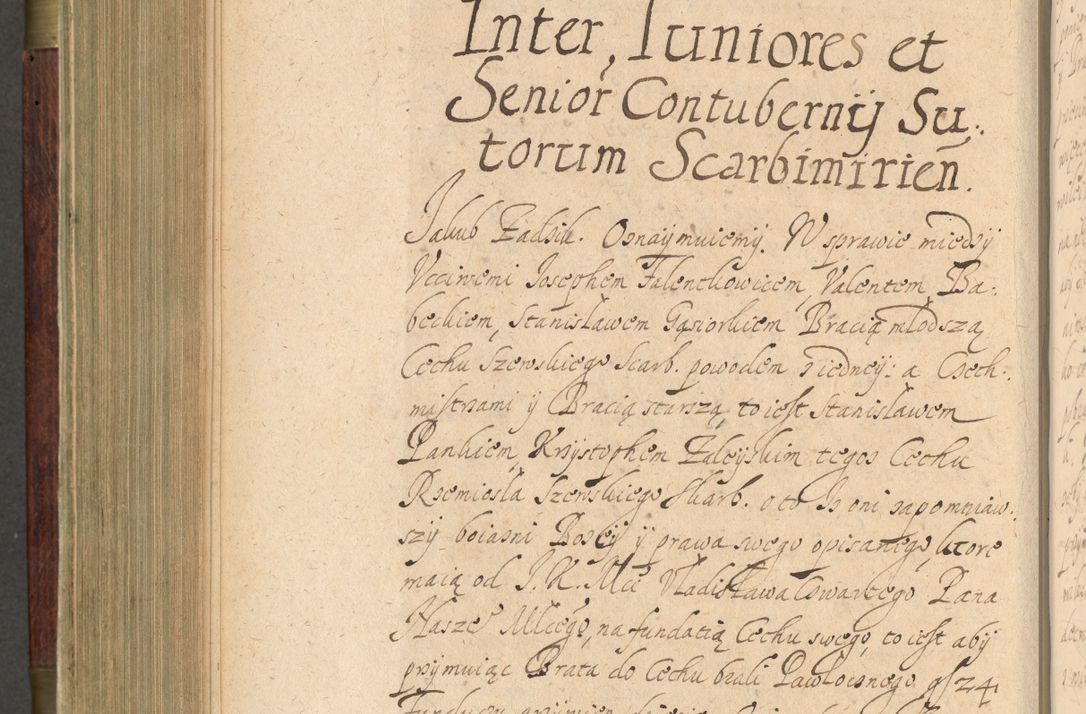 Inter, Iuniores et
Senior Contubernÿ Su:
torum Scarbimirień.
Jakub Zadzik. Oznaÿmuiemÿ. W sprawie miedzÿ
Vcciwemi Josephem Falenckowicem, Valentem Ba:
beckiem, Stanisławem Gąsiorkiem Bracią młodszą
Cechu Szewskiego Scarb. powodem ziedneÿ: a Czech:
mistrzami ÿ Bracią starszą, to iest Stanisławem
Pankiem, Krzÿstophem Zaleÿskim tegoz Cechu
Rzemiesła Szewskiego Skarb. o to Iz oni zapomniaw:
szÿ boiazni Bozeÿ ÿ prawa swego opisanego, ktore
maią od J. K. Mci Vładisława Czwartego, Pana
Nasze° Młciego, na fundatią Cechu swego, to iest abÿ
przÿmuiąc Brata do Cechu brali Pawłocznego gſ 24.